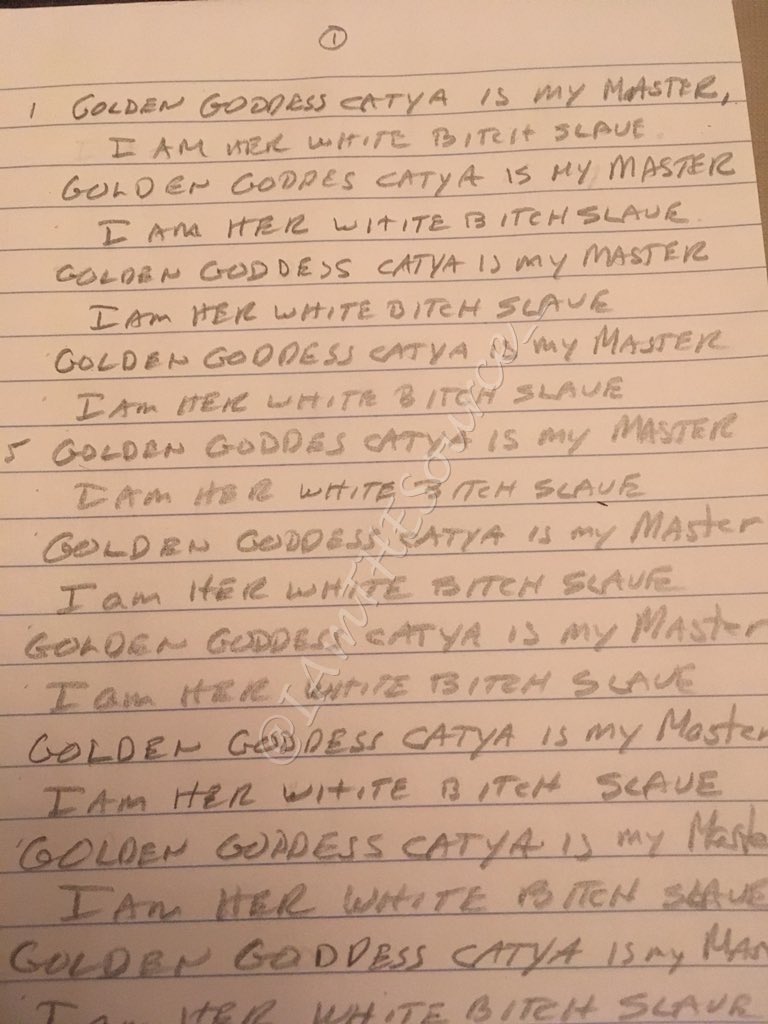 ①
1 GOLDEN GODDESS CATYA IS MY MASTER,
I AM HER WHITE BITCH SLAVE.
GOLDEN GODDES CATYA IS MY MASTER
I AM HER WHITE BITCH SLAVE.
GOLDEN GODDESS CATYA IS my MASTER
I Am HER WHITE BITCH SLAVE
GOLDEN GODDESS CATYA IS my MASTER
I Am HER WHITE BITCH SLAVE
5 GOLDEN GODDES CATYA IS my MASTER
I Am HER WHITE BITCH SLAVE
GOLDEN GODDESS CATYA IS my MASter
I am HER WHITE BITCH SLAVE
GOLDEN GODDESS CATYA IS my Master
I am HER WHITE BITCH SLAVE
GOLDEN GODDESS CATYA IS my Master
I Am HER WHITE BITCH SLAVE
GOLDEN GODDESS CATYA IS my Maste
I Am HER WHITE BITCH SLAVE
GOLDEN GODDESS CATYA IS my MAS
I am HER WHITE BITCH SLAVE
@IAmTHESource_